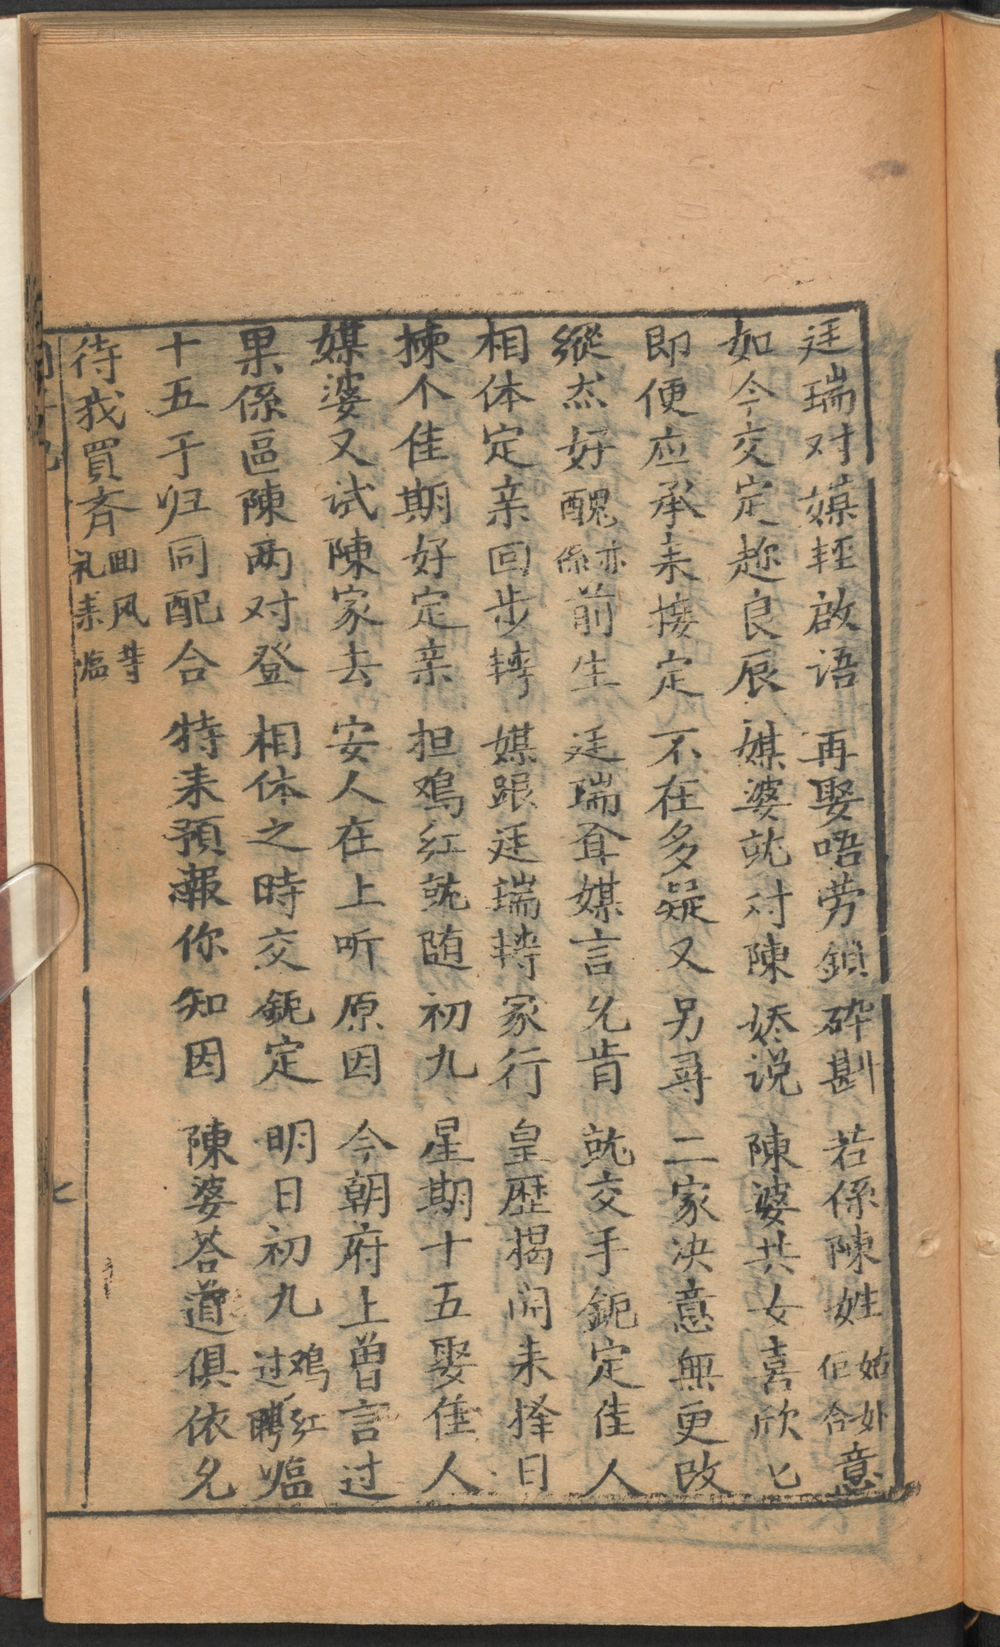 廷瑞对媒軽啟语　再娶唔劳鎖碎斟　若係陳姓姑外佢合意
如今交定趂良辰　媒婆就对陳娇说　陳婆共女喜欣匕
即便应承来接定　不在多疑又另尋　二家决意無更改
縱然好醜亦係前生　廷瑞耸媒言允肯　就交手鈪定佳人
相体定亲回步轉　媒跟廷瑞转家行　皇歷揭闲来择日
揀个佳期好定亲　担鸡红就随初九　星期十五娶佳人
媒婆又试陳家去　安人在上听原因　今朝府上曾言过
果係區陳两对登　相体之時交鈪定　明日初九鸡红过聘臨
十五于归同配合　特来預報你知因　陳婆答道俱依允
待我買斉囬风礼来臨
七